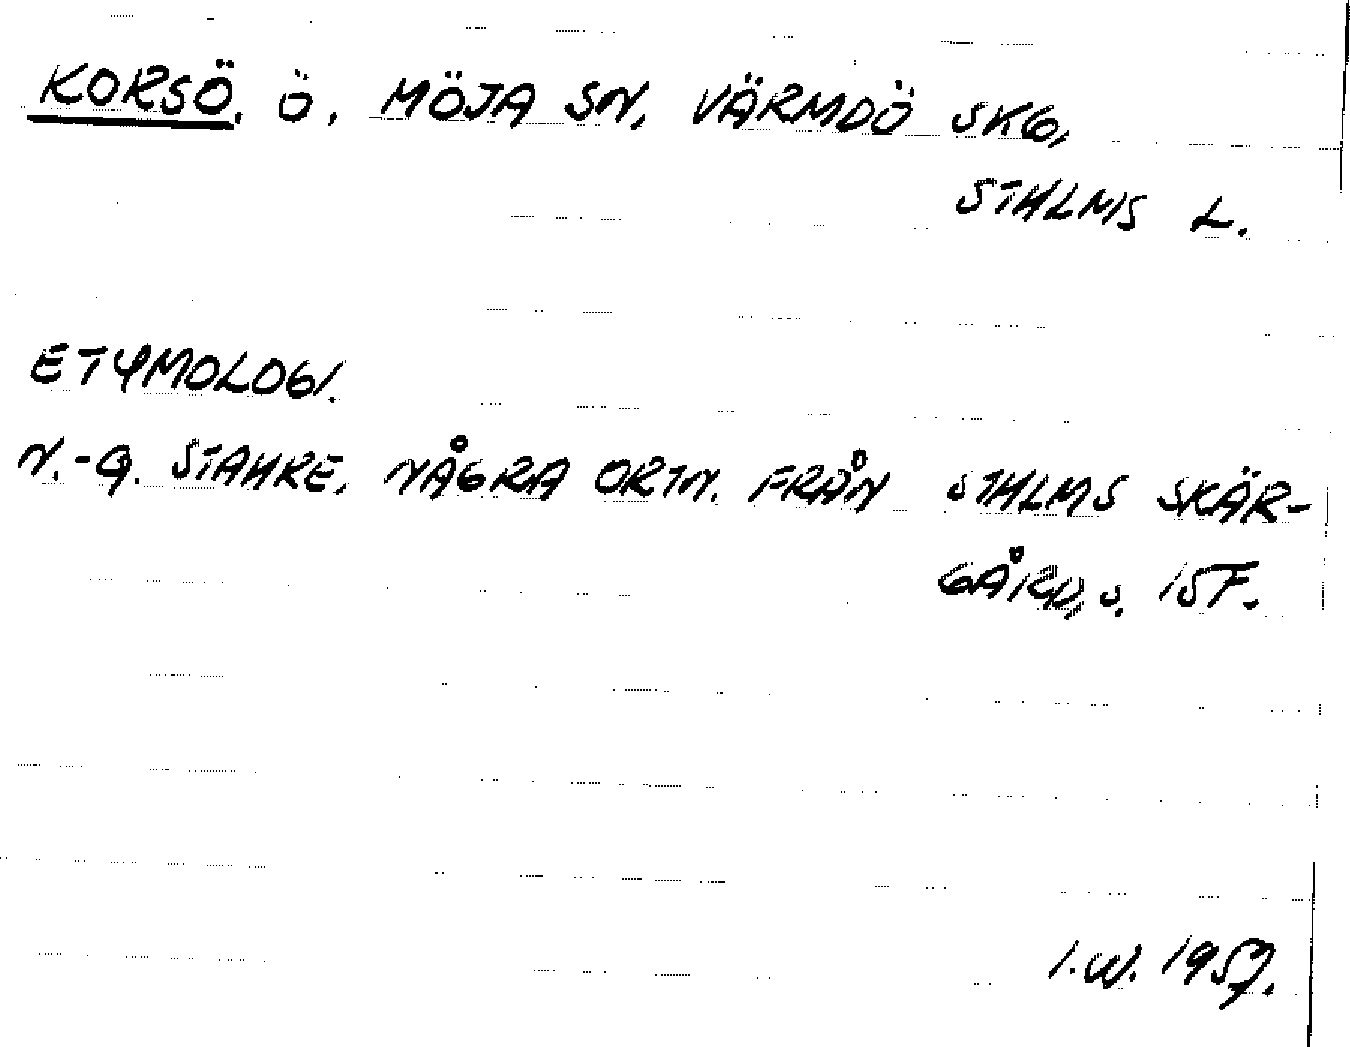 KORSÖ, Ö, MÖJA SN, VÄRMDÖ SKG,
STHLMS L.
ETYMOLOGI.
N.-G. STAHRE, NÅGRA ORTN. FRÅN STHLMS SKÄR-
GÅRD, S. 15F.
I.W. 1957.